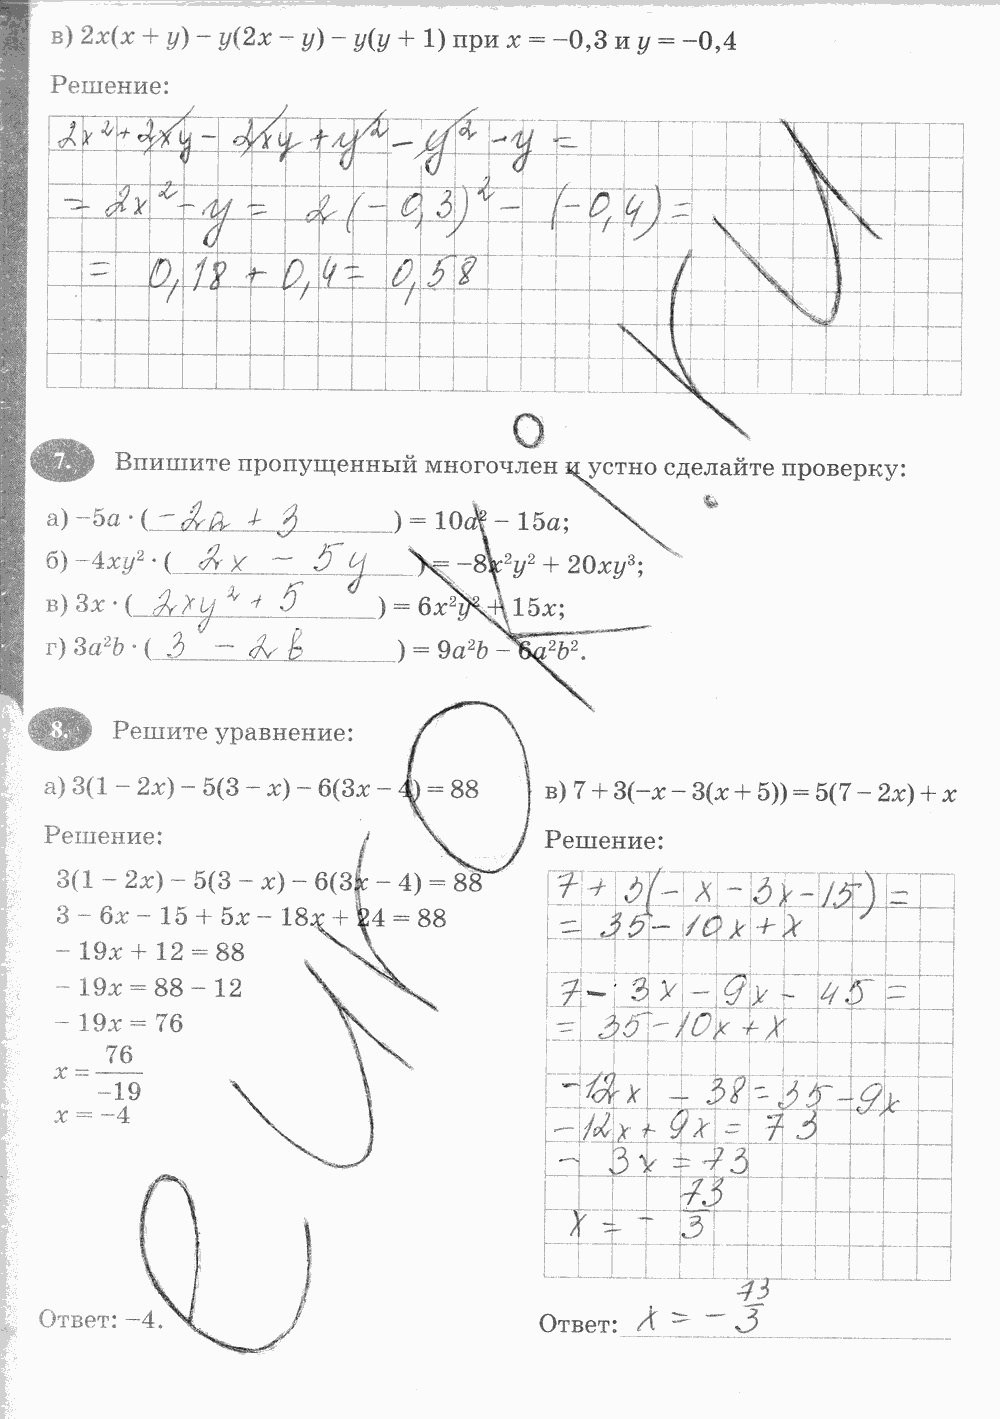 в) 2x(x + y) − y(2x − y) − y(y + 1) при x = −0,3 и y = −0,4
Решение:
2x² + 2xy − 2xy + y² − y² − y =
= 2x² − y = 2(−0,3)² − (−0,4) =
= 0,18 + 0,4 = 0,58
7. Впишите пропущенный многочлен и устно сделайте проверку:
а) −5a · (−2a + 3) = 10a² − 15a;
б) −4xy² · (2x − 5y) = −8x²y² + 20xy³;
в) 3x · (2xy² + 5) = 6x²y² + 15x;
г) 3a²b · (3 − 2b) = 9a²b − 6a²b².
8. Решите уравнение:
а) 3(1 − 2x) − 5(3 − x) − 6(3x − 4) = 88
Решение:
3(1 − 2x) − 5(3 − x) − 6(3x − 4) = 88
3 − 6x − 15 + 5x − 18x + 24 = 88
− 19x + 12 = 88
− 19x = 88 − 12
− 19x = 76
x = 76/−19
x = −4
Ответ: −4.
в) 7 + 3(−x − 3(x + 5)) = 5(7 − 2x) + x
Решение:
7 + 3(− x − 3x − 15) =
= 35 − 10x + x
7 − 3x − 9x − 45 =
= 35 − 10x + x
−12x − 38 = 35 − 9x
−12x + 9x = 73
− 3x = 73
x = − 73/3
Ответ: x = − 73/3
euroki.org